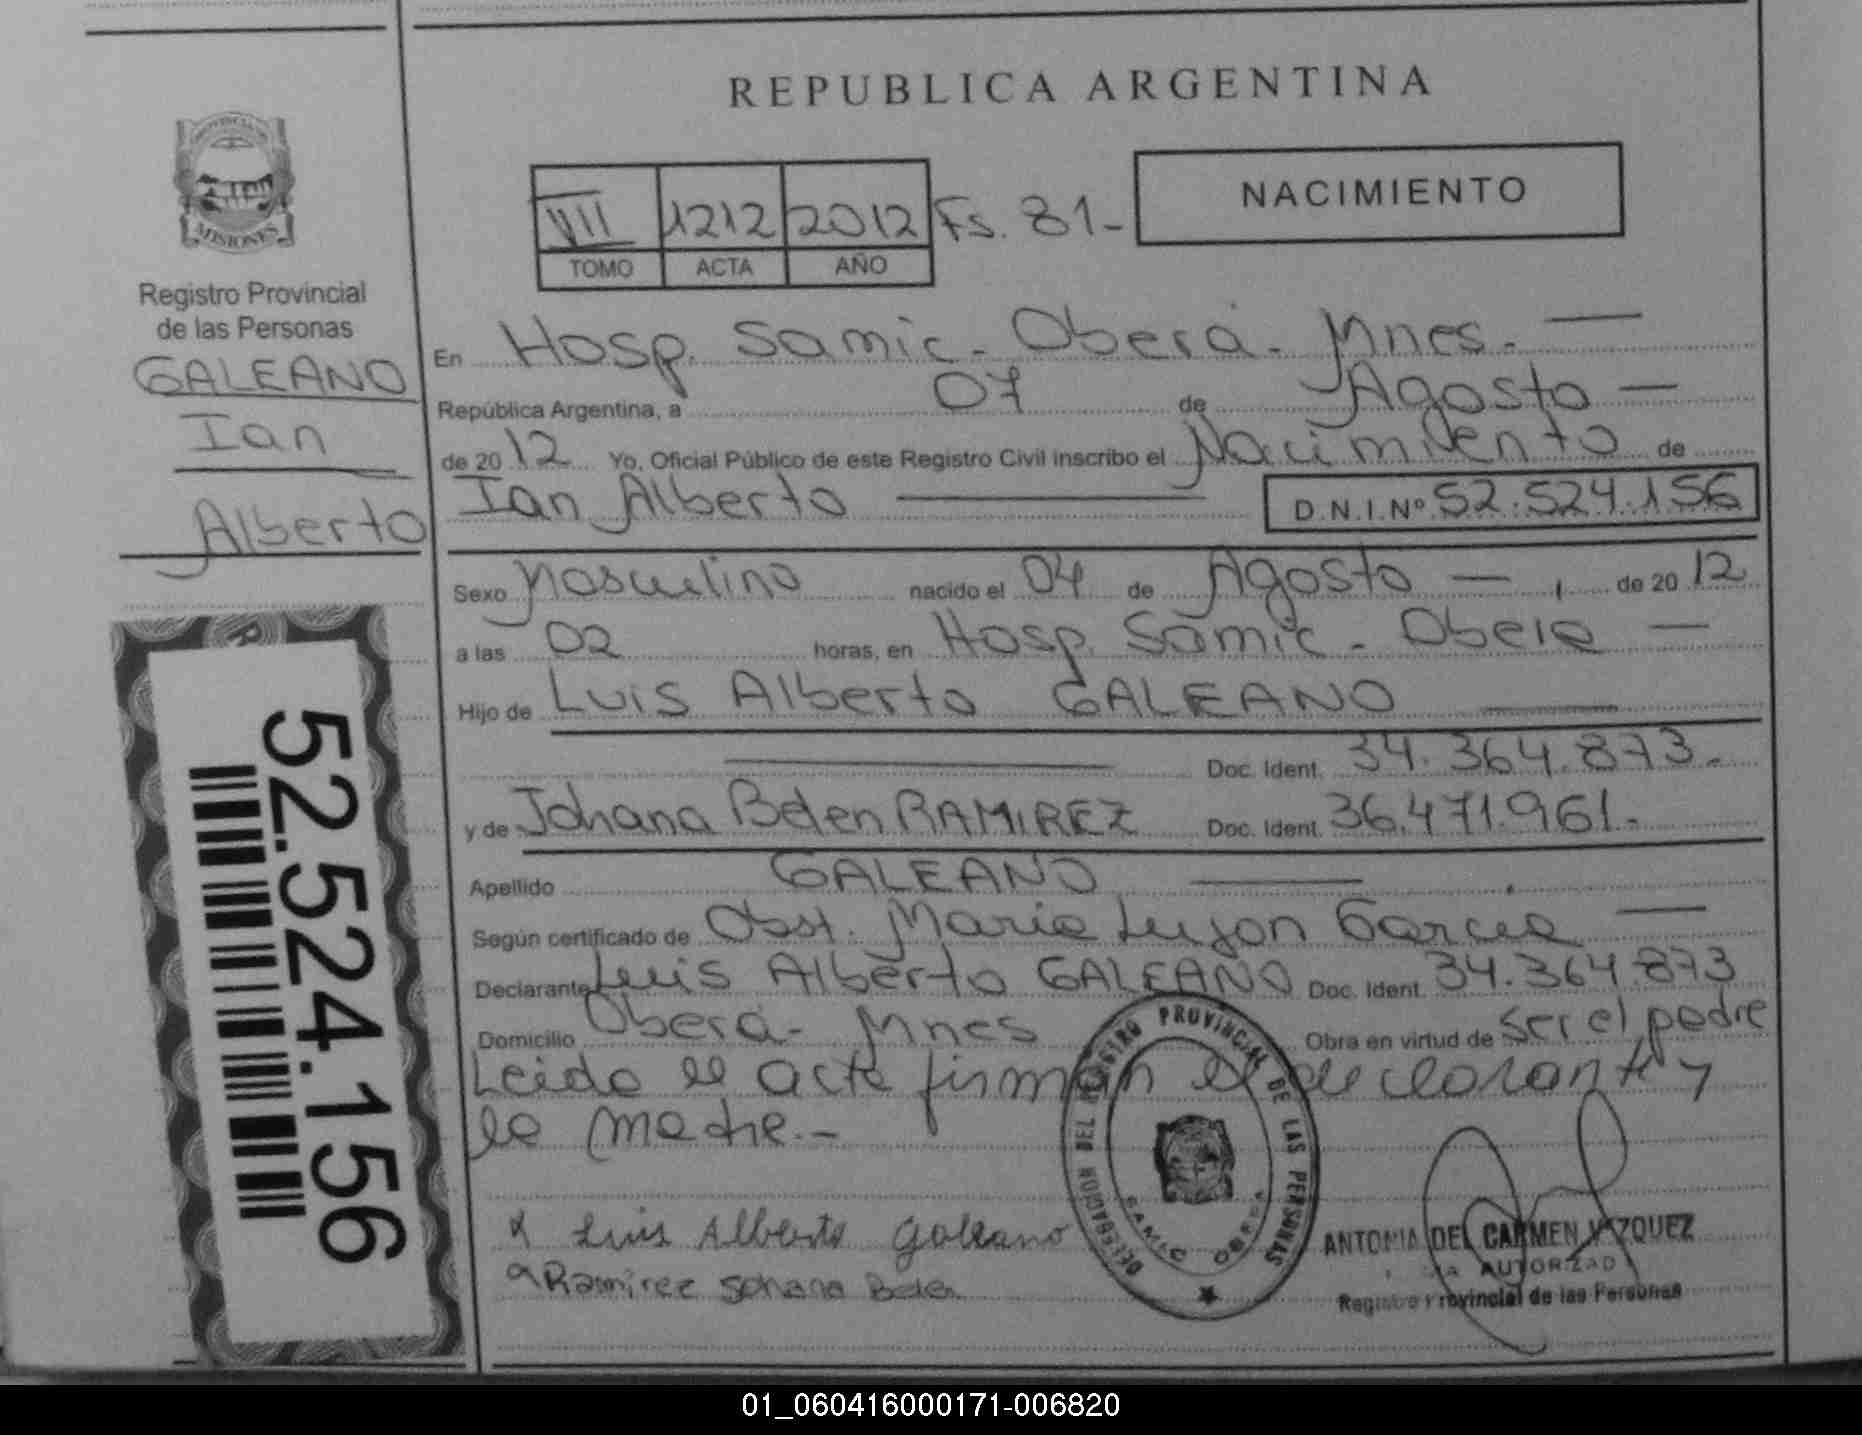 REPUBLICA ARGENTINA
PROVINCIA DE
MISIONES
Registro Provincial
de las Personas
GALEANO
Ian
Alberto
52.524.156
VII 1212 2012 Fs. 81-
TOMO ACTA AÑO
NACIMIENTO
En Hosp. Samic - Oberá - Mnes. —
República Argentina, a 07 de Agosto —
de 2012 Yo, Oficial Público de este Registro Civil inscribo el Nacimiento de
Ian Alberto — D.N.I.Nº 52.524.156
Sexo Masculino nacido el 04 de Agosto — de 2012
a las 02 horas, en Hosp. Samic - Obera —
Hijo de Luis Alberto GALEANO —
— Doc. Ident. 34.364.873.-
y de Johana Belen RAMIREZ Doc. Ident. 36.471.961.-
Apellido GALEANO —
Según certificado de Obst. Maria Lujan Garcia —
Declarante Luis Alberto GALEANO Doc. Ident. 34.364.873
Domicilio Oberá - Mnes Obra en virtud de ser el padre
Leida el acta firman el declarante y
la madre.-
Luis Alberto Galeano
Ramirez Johana Belen
DELEGACION DEL REGISTRO PROVINCIAL DE LAS PERSONAS
SAMIC OBERA
ANTONIA DEL CARMEN VAZQUEZ
AUTORIZADA
Registro Provincial de las Personas
01_060416000171-006820